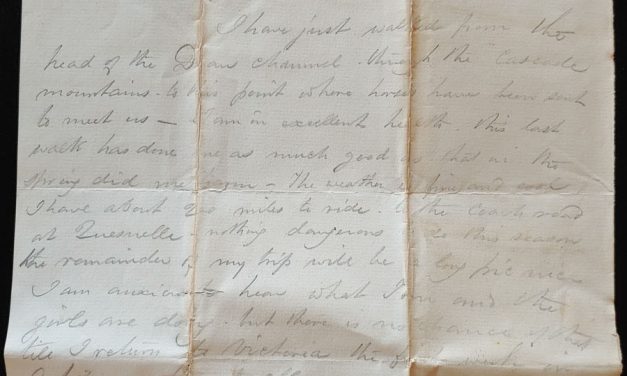 I have just walked from the
head of the Dean channel. through the "Cascade
mountains. to this point where horses have been sent
to meet us — I am in excellent health. this last
walk has done me as much good as that in the
spring did me harm — The weather is fine and cool,
I have about 200 miles to ride. to the coach road
at Quesnelle. nothing dangerous in this season
the remainder of my trip will be a long pic nic
I am anxious to hear what Tom and the
girls are doing. but there is no chance of that
till I return to Victoria the first week in